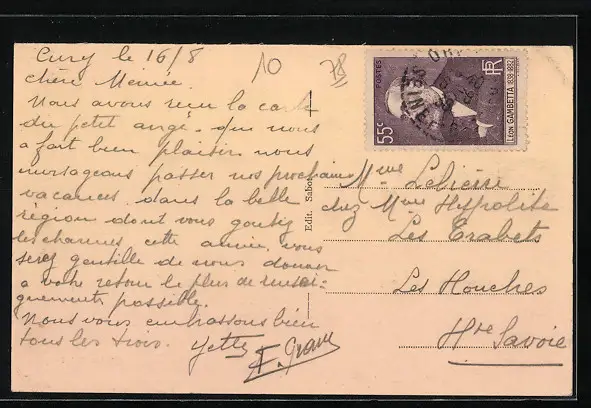 le 16/8
chère Mémée.
Nous avons reçu la carte
du petit ange. qui nous
a fait bien plaisir. nous
envisageons passer nos prochaines
vacances dans la belle
région dont vous goutez
les charmes cette année. vous
serez gentille de nous donner
a votre retour le plus de rensei-
gnements possible.
Nous vous embrassons bien
tous les trois. Yette
10
78
Edit. Sabot
POSTES
RF
55c
LÉON GAMBETTA 1838-1882
Mme
chez Mme Hippolite
Les Trabets
Les Houches
Hte Savoie